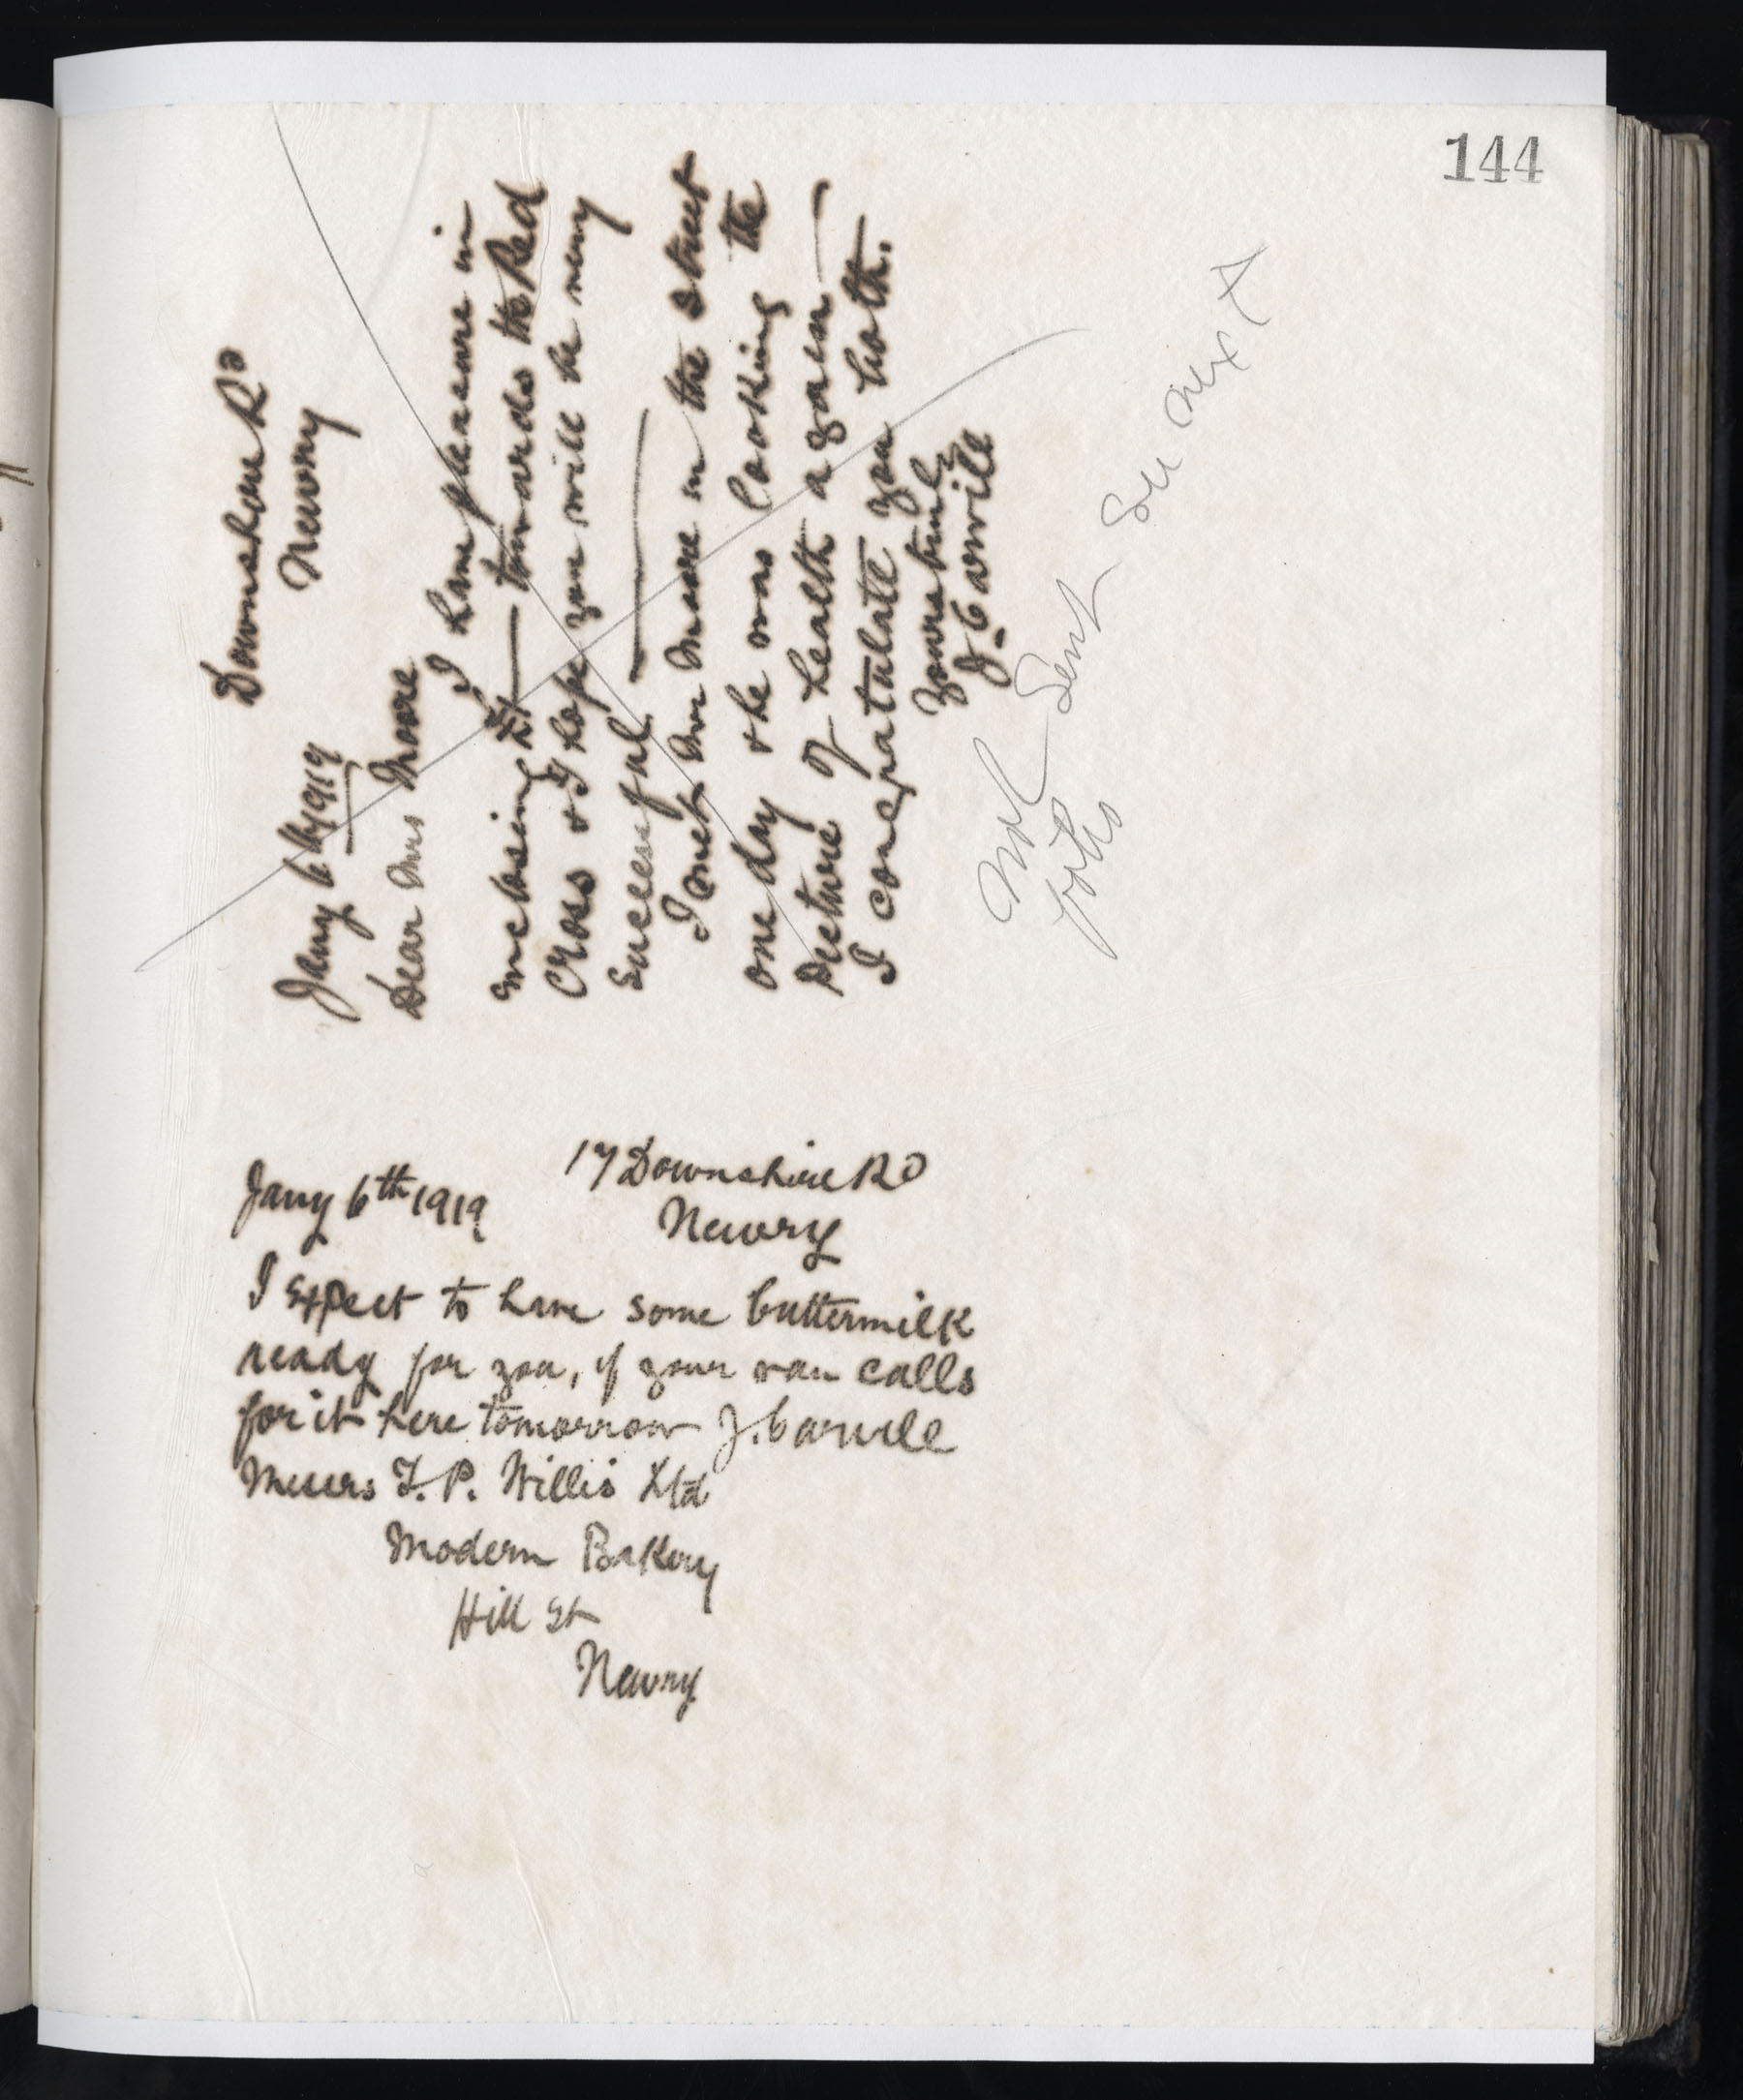 144
Downshire Rd
Newry
Jany 6th 1919
Dear Mrs Moore
I have pleasure in
enclosing £1 — towards the Red
Cross & I hope you will be very
Successful —
I met Mr Moore in the street
one day & he was looking the
picture of health again —
I congratulate you both.
Yours truly
J. Carvile
Not Sent See next
Jany 6th 1919
17 Downshire Rd
Newry
I Expect to have some buttermilk
ready for you, if your van calls
for it here tomorrow J. Carvile
Messrs F. P. Willis Ltd
Modern Bakery
Hill St
Newry